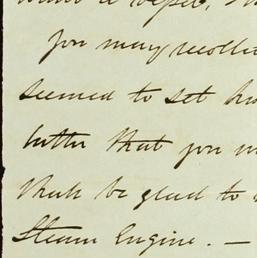 you may recolle
seemed to set
better that you
shall be glad to
Steam Engine. —